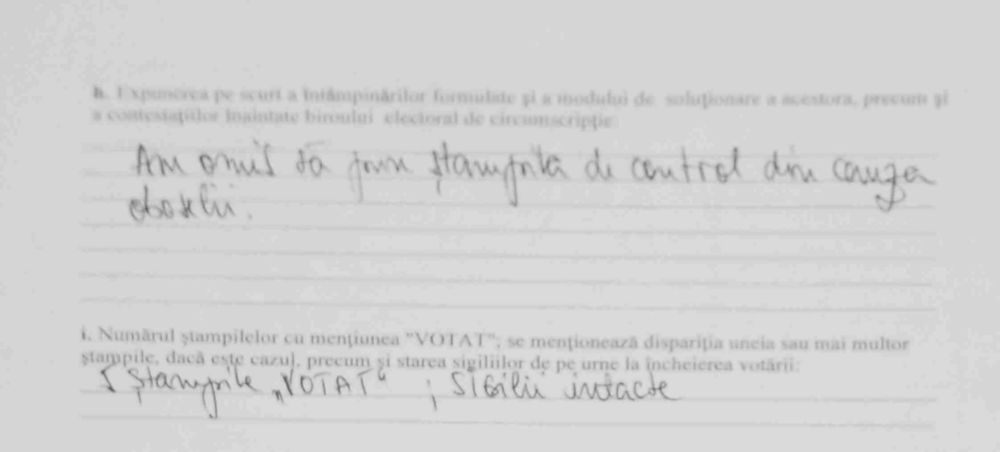 h. Expunerea pe scurt a întâmpinărilor formulate și a modului de soluționare a acestora, precum și
a contestațiilor înaintate biroului electoral de circumscripție:
Am omis să pun ștampila de control din cauza
oboselii.
i. Numărul ștampilelor cu mențiunea "VOTAT"; se menționează dispariția uneia sau mai multor
ștampile, dacă este cazul, precum și starea sigiliilor de pe urne la încheierea votării:
5 ștampile „VOTAT“ ; Sigilii intacte